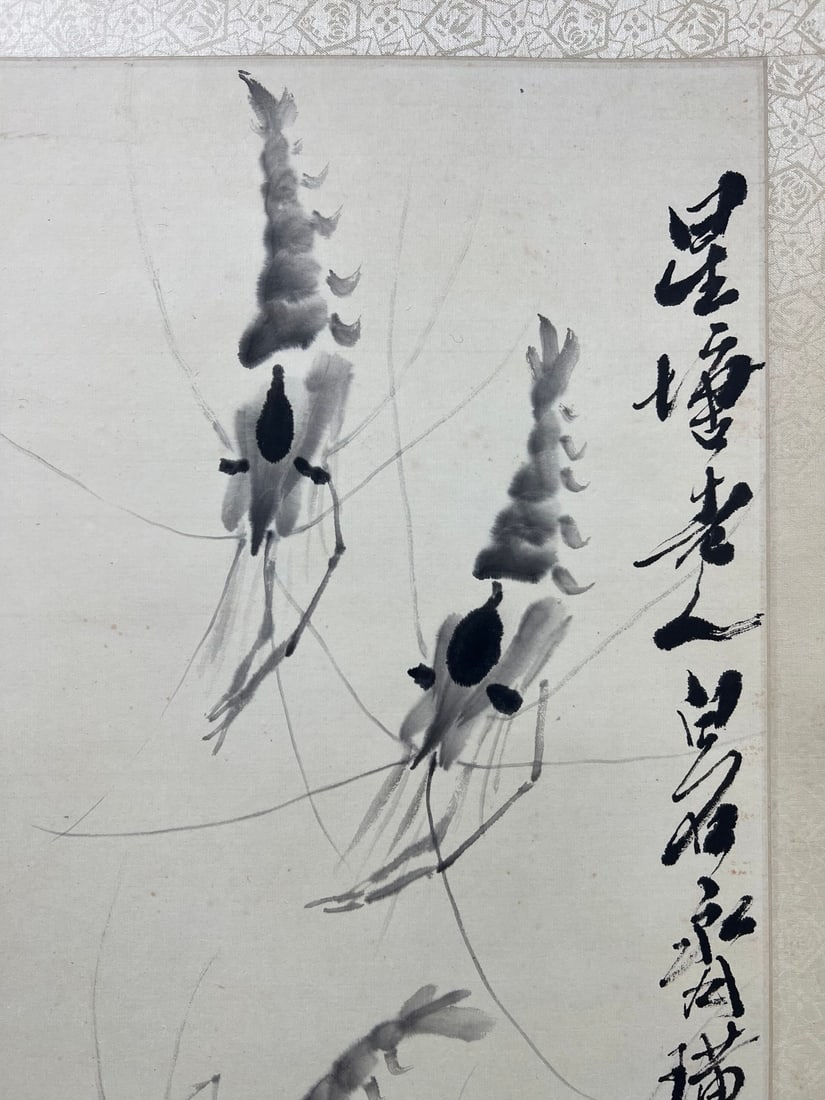 星塘老人白石齊璜